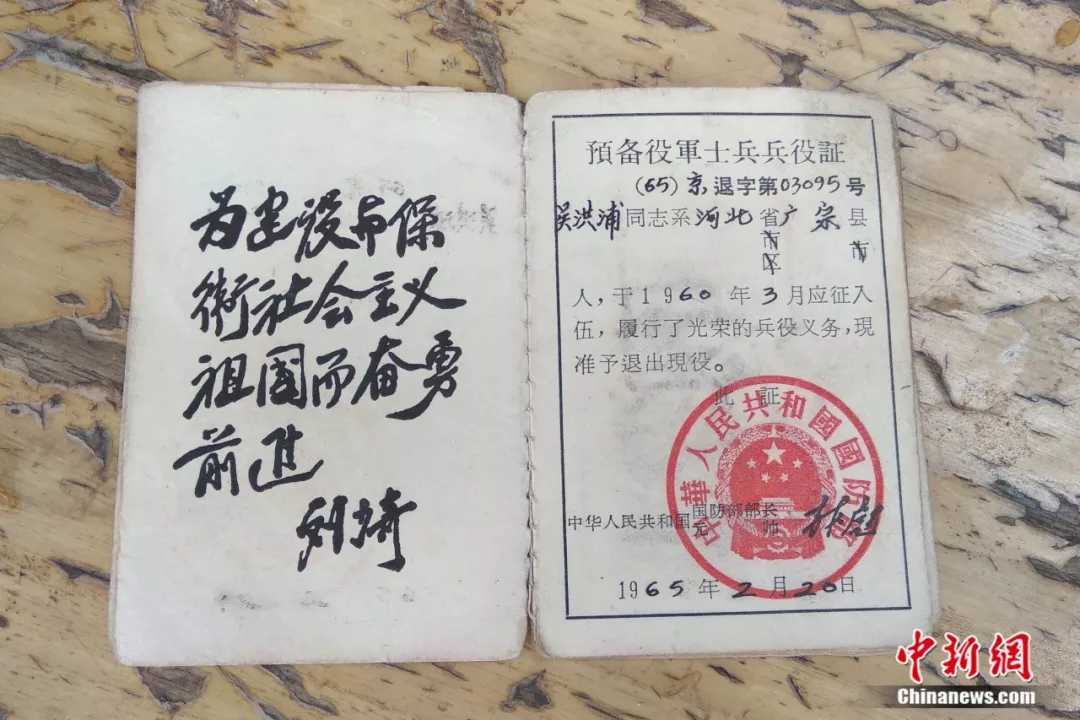 为建设与保
衛社会主义
祖國而奋勇
前進
預备役軍士兵兵役証
(65)京退字第03095号
吴洪浦同志系河北省市区广宗县市
人，于1960年3月应征入
伍，履行了光荣的兵役义务，現
准予退出現役。
此証
中華人民共和國國防部
中华人民共和国国防部部长
元帅 林彪
1965年2月20日
中新网
Chinanews.com